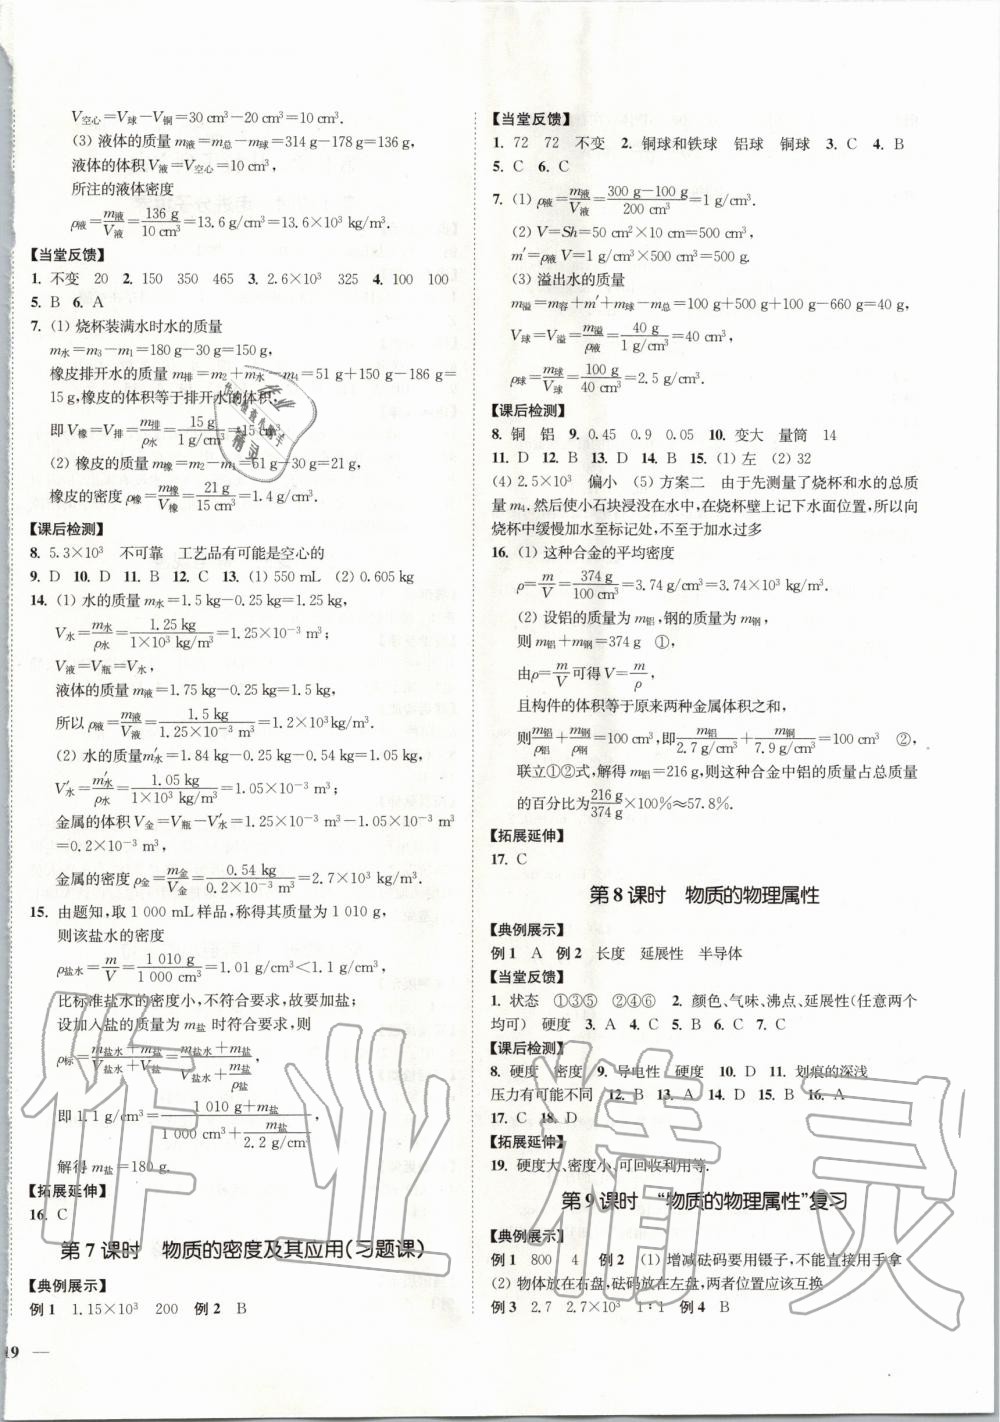 V空心=V球-V铜=30 cm³-20 cm³=10 cm³.
(3) 液体的质量 m液=m总-m球=314 g-178 g=136 g,
液体的体积 V液=V空心=10 cm³,
所注的液体密度
ρ液=m液/V液=136 g/10 cm³=13.6 g/cm³=13.6×10³ kg/m³.
【当堂反馈】
1. 不变 20 2. 150 350 465 3. 2.6×10³ 325 4. 100 100
5. B 6. A
7. (1) 烧杯装满水时水的质量
m水=m3-m1=180 g-30 g=150 g,
橡皮排开水的质量 m排=m2+m水-m4=51 g+150 g-186 g=
15 g,橡皮的体积等于排开水的体积,
即 V橡=V排=m排/ρ水=15 g/1 g/cm³=15 cm³.
(2) 橡皮的质量 m橡=m2-m1=51 g-30 g=21 g,
橡皮的密度 ρ橡=m橡/V橡=21 g/15 cm³=1.4 g/cm³.
【课后检测】
8. 5.3×10³ 不可靠 工艺品有可能是空心的
9. D 10. D 11. B 12. C 13. (1) 550 mL (2) 0.605 kg
14. (1) 水的质量 m水=1.5 kg-0.25 kg=1.25 kg,
V水=m水/ρ水=1.25 kg/1×10³ kg/m³=1.25×10⁻³ m³;
V液=V瓶=V水,
液体的质量 m液=1.75 kg-0.25 kg=1.5 kg,
所以 ρ液=m液/V液=1.5 kg/1.25×10⁻³ m³=1.2×10³kg/m³.
(2) 水的质量m′水=1.84 kg-0.25 kg-0.54 kg=1.05 kg,
V′水=m′水/ρ水=1.05 kg/1×10³ kg/m³=1.05×10⁻³ m³;
金属的体积 V金=V瓶-V′水=1.25×10⁻³ m³-1.05×10⁻³ m³
=0.2×10⁻³ m³,
金属的密度 ρ金=m金/V金=0.54 kg/0.2×10⁻³ m³=2.7×10³ kg/m³.
15. 由题知,取 1 000 mL 样品,称得其质量为 1 010 g,
则该盐水的密度
ρ盐水=m/V=1 010 g/1 000 cm³=1.01 g/cm³<1.1 g/cm³,
比标准盐水的密度小,不符合要求,故要加盐;
设加入盐的质量为 m盐 时符合要求,则
ρ标=m盐水+m盐/V盐水+V盐=m盐水+m盐/V盐水+m盐/ρ盐,
即 1.1 g/cm³=1 010 g+m盐/1 000 cm³+m盐/2.2 g/cm³,
解得 m盐=180 g.
【拓展延伸】
16. C
第 7 课时 物质的密度及其应用(习题课)
【典例展示】
例 1 1.15×10³ 200 例 2 B
19 —
【当堂反馈】
1. 72 72 不变 2. 铜球和铁球 铝球 铜球 3. C 4. B
5. C 6. C
7. (1) ρ液=m液/V液=300 g-100 g/200 cm³=1 g/cm³.
(2) V=Sh=50 cm²×10 cm=500 cm³,
m′=ρ液 V=1 g/cm³×500 cm³=500 g.
(3) 溢出水的质量
m溢=m容+m′+m球-m总=100 g+500 g+100 g-660 g=40 g,
V球=V溢=m溢/ρ液=40 g/1 g/cm³=40 cm³,
ρ球=m球/V球=100 g/40 cm³=2.5 g/cm³.
【课后检测】
8. 铜 铝 9. 0.45 0.9 0.05 10. 变大 量筒 14
11. D 12. B 13. D 14. B 15. (1) 左 (2) 32
(4) 2.5×10³ 偏小 (5) 方案二 由于先测量了烧杯和水的总质
量 m4,然后使小石块浸没在水中,在烧杯壁上记下水面位置,所以向
烧杯中缓慢加水至标记处,不至于加水过多
16. (1) 这种合金的平均密度
ρ=m/V=374 g/100 cm³=3.74 g/cm³=3.74×10³ kg/m³.
(2) 设铝的质量为 m铝,钢的质量为 m钢,
则 m铝+m钢=374 g ①,
由ρ=m/V可得 V=m/ρ,
且构件的体积等于原来两种金属体积之和,
则m铝/ρ铝+m钢/ρ钢=100 cm³,即m铝/2.7 g/cm³+m钢/7.9 g/cm³=100 cm³ ②,
联立①②式,解得 m铝=216 g,则这种合金中铝的质量占总质量
的百分比为216 g/374 g×100%≈57.8%.
【拓展延伸】
17. C
第 8 课时 物质的物理属性
【典例展示】
例 1 A 例 2 长度 延展性 半导体
【当堂反馈】
1. 状态 ①③⑤ ②④⑥ 2. 颜色、气味、沸点、延展性(任意两个
均可) 硬度 3. A 4. A 5. C 6. C 7. C
【课后检测】
8. 硬度 密度 9. 导电性 硬度 10. D 11. 划痕的深浅
压力有可能不同 12. B 13. A 14. D 15. B 16. A
17. C 18. D
【拓展延伸】
19. 硬度大、密度小、可回收利用等.
第 9 课时 “物质的物理属性”复习
【典例展示】
例 1 800 4 例 2 (1) 增减砝码要用镊子,不能直接用手拿
(2) 物体放在右盘,砝码放在左盘,两者位置应该互换
例 3 2.7 2.7×10³ 1∶1 例 4 B
作业精灵